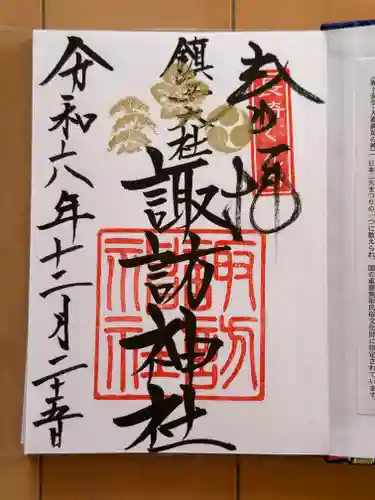 奉拝
長崎くんち
鎮西大社
諏訪神社
諏訪神社
令和六年十二月二十五日
日本三大まつりの一つに数えられ、国の重要無形民俗文化財に指定されています。